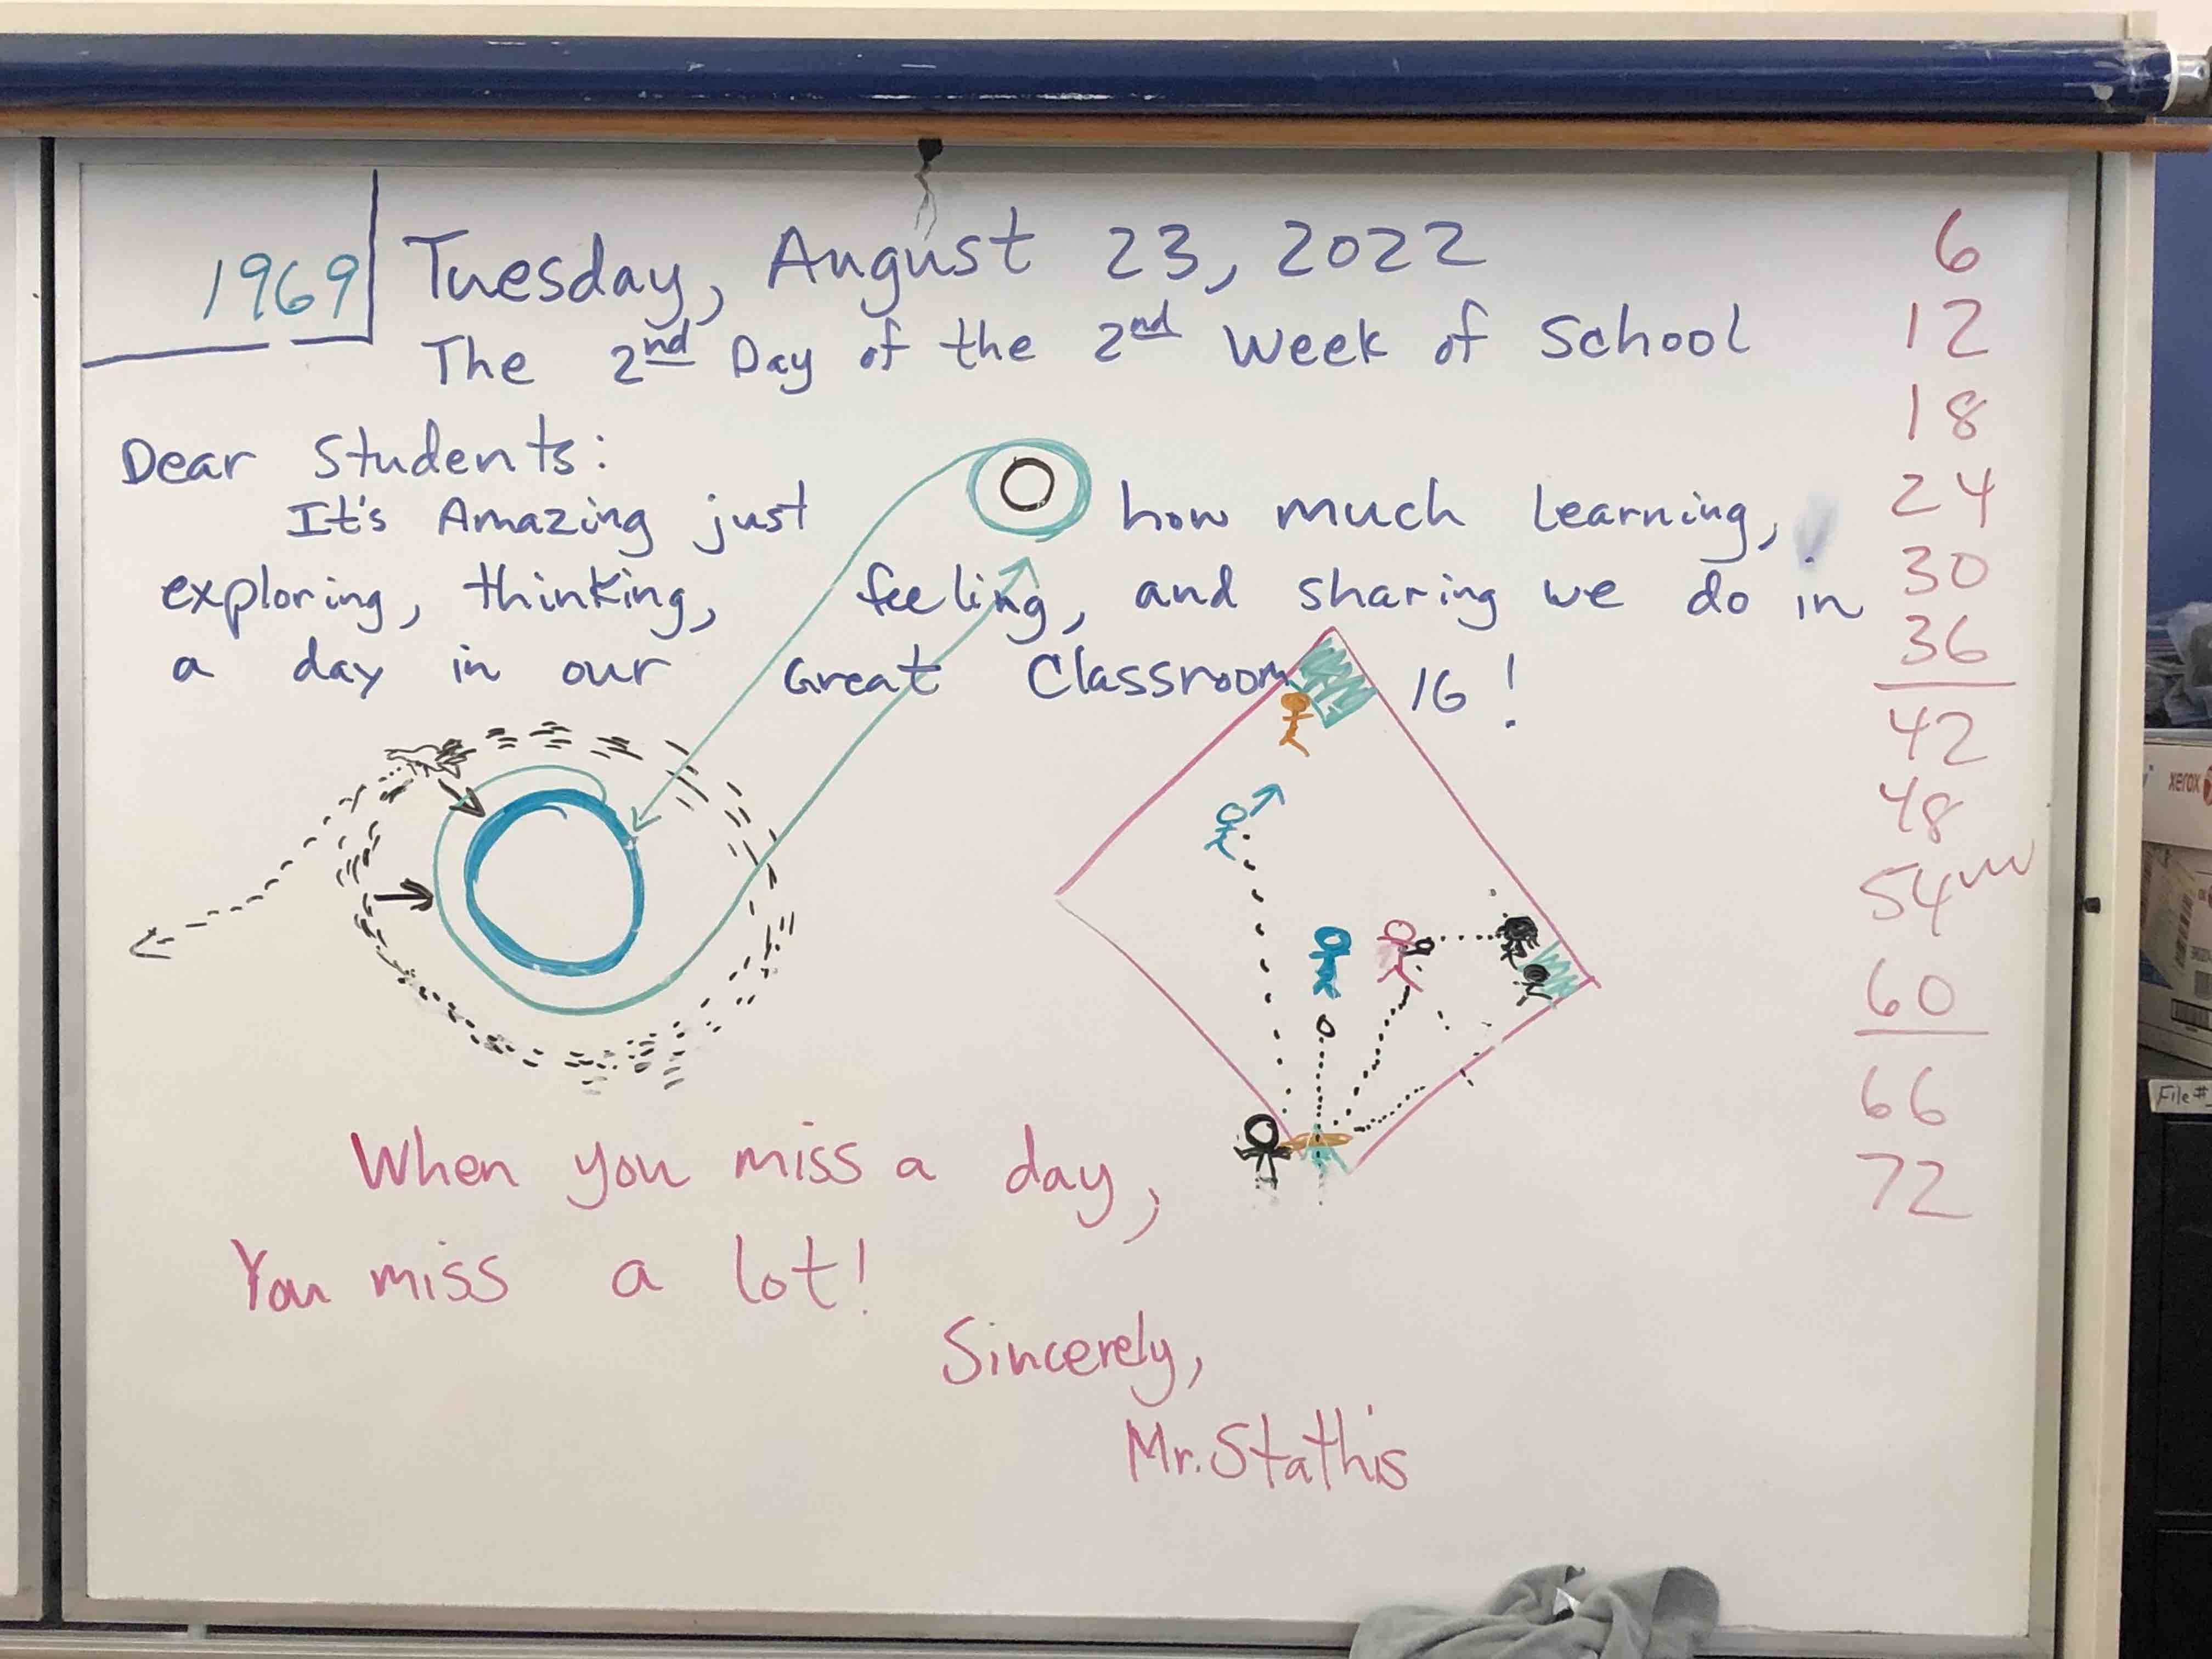 1969
Tuesday, August 23, 2022
The 2nd Day of the 2nd Week of School
Dear Students:
It's Amazing just how much learning,
exploring, thinking, feeling, and sharing we do in
a day in our Great Classroom 16!
When you miss a day,
You miss a lot!
Sincerely,
Mr. Stathis
6
12
18
24
30
36
42
48
54
60
66
72
xerox
File #